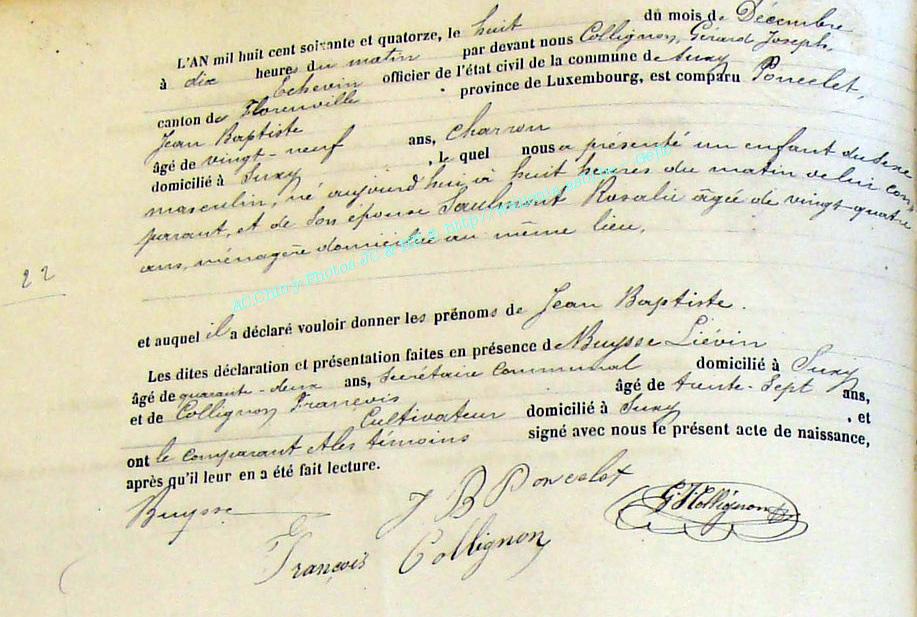 L'AN mil huit cent soixante et quatorze, le huit du mois de Décembre
à dix heures du matin par devant nous Collignon, Gérard Joseph,
Echevin officier de l'état civil de la commune de Suxy
canton de Florenville province de Luxembourg, est comparu Poncelet,
Jean Baptiste
âgé de vingt-neuf ans, charron
domicilié à Suxy, le quel nous a présenté un enfant du sexe
masculin, né aujourd'hui à huit heures du matin de lui com
parant, et de son épouse Saulmont Rosalie âgée de vingt-quatre
ans, ménagère domiciliée au même lieu,
22
AC.Chiny-Photos JC
et auquel il a déclaré vouloir donner les prénoms de Jean Baptiste.
Les dites déclaration et présentation faites en présence de Buysse Liévin
âgé de quarante-deux ans, Secrétaire Communal domicilié à Suxy
et de Collignon François âgé de trente-sept ans,
Cultivateur domicilié à Suxy, et
ont le comparant et les témoins signé avec nous le présent acte de naissance,
après qu'il leur en a été fait lecture.
Buysse J B Poncelet G J Collignon
François Collignon